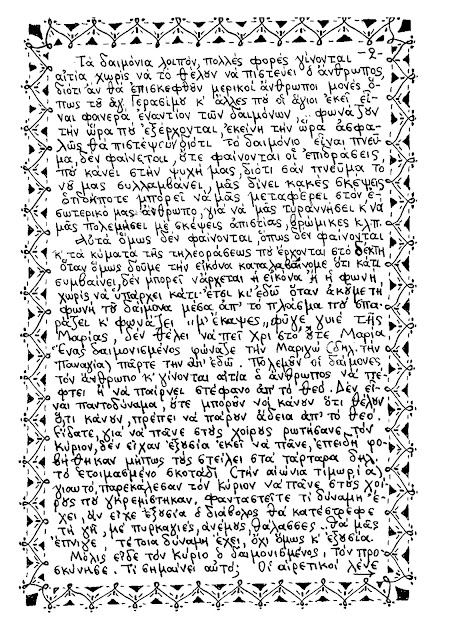 -2-
Τὰ δαιμόνια λοιπόν, πολλές φορές γίνονται
αἰτία χωρίς νά τό θέλουν νά πιστεύει ὁ ἄνθρωπος,
διότι ἄν θά ἐπισκεφθοῦν μερικοί ἄνθρωποι μονές ὅ-
πως τοῦ ἁγ. Γερασίμου κ' ἄλλες πού οἱ ἅγιοι ἐκεῖ εἶ-
ναι φανερά ἐναντίον τῶν δαιμόνων, φωνάζουν
τήν ὥρα πού ἐξέρχονται, ἐκείνη τήν ὥρα ἀσφα-
λῶς θά πιστέψουν διότι τό δαιμόνιο εἶναι πνεῦ-
μα, δέν φαίνεται, οὔτε φαίνονται οἱ ἐπιδράσεις
πού κάνει στήν ψυχή μας, διότι σάν πνεῦμα τό
νοῦ μας συλλαμβάνει, μᾶς δίνει κακές σκέψεις
ὁτιδήποτε μπορεῖ νά μᾶς μεταφέρει στόν ἐ-
σωτερικό μας ἄνθρωπο, γιά νά μᾶς τυραννήσει κ' νά
μᾶς πολεμήσει μέ σκέψεις ἀπιστίας, βρώμικες κ.λ.π.
Αὐτά ὅμως δέν φαίνονται, ὅπως δέν φαίνονται
κ' τά κύματα τῆς τηλεοράσεως πού ἔρχονται στό δέκτη
ὅταν ὅμως δοῦμε τήν εἰκόνα καταλαβαίνουμε ὅτι κάτι
συμβαίνει, δέν μπορεῖ νἄρχεται ἡ εἰκόνα ἤ ἡ φωνή
χωρίς νά ὑπάρχει κάτι· ἔτσι κι' ἐδῶ ὅταν ἀκοῦμε τή
φωνή τοῦ δαίμονα μέσα ἀπ' τό πλάσμα πού σπα-
ράζει κ' φωνάζει „μ' ἔκαψες„ „φύγε γυιέ τῆς
Μαρίας, δέν θέλει νά πεῖ Χριστό οὔτε Μαρία
Ἕνας δαιμονισμένος φώναζε τήν Μαριγώ (δηλ. τήν
Παναγία) πάρτε την ἀπ' ἐδῶ. Πολεμοῦν οἱ δαίμονες
τόν ἄνθρωπο κ' γίνονται αἰτία ὁ ἄνθρωπος νά πέ-
φτει ἤ νά παίρνει στέφανο ἀπ' τό Θεό. Δέν εἶ-
ναι παντοδύναμα, οὔτε μποροῦν νά κάνουν ὅτι θέλουν
ὅτι κάνουν, πρέπει νά πάρουν ἄδεια ἀπ' τό Θεό.
Εἴδατε, γιά νά πᾶνε στούς χοίρους ρωτήσανε τόν
Κύριον, δέν εἶχαν ἐξουσία ἐκεῖ νά πᾶνε, ἐπειδή φο-
βήθηκαν μήπως τούς στείλει στά τάρταρα δηλ.
τό ἑτοιμασμένο σκοτάδι (στήν αἰώνια τιμωρία)
γιαυτό, παρεκάλεσαν τόν Κύριον νά πᾶνε στούς χοί-
ρους πού γκρεμίστηκαν, φανταστεῖτε τί δύναμη ἔ-
χει, ἄν εἶχε ἐξουσία ὁ διάβολος θά κατέστρεφε
τή γῆ, μέ πυρκαγιές, ἀνέμους, θάλασσες. Θά μᾶς
ἔπνιγε τέτοια δύναμη ἔχει, ὄχι ὅμως κ' ἐξουσία.
Μόλις εἶδε τόν Κύριο ὁ δαιμονισμένος, τόν προ-
σκύνησε. Τί σημαίνει αὐτό; Οἱ αἱρετικοί λένε